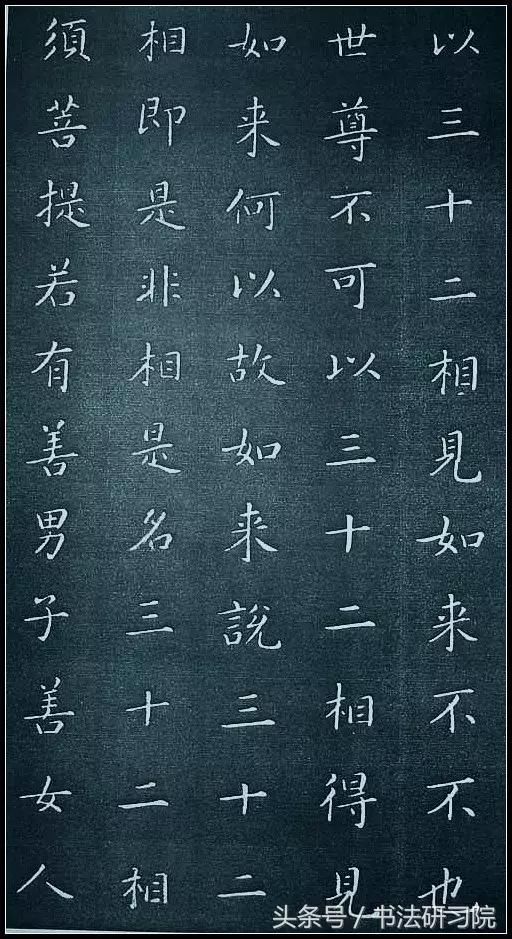 以三十二相見如来不不也
世尊不可以三十二相得見
如来何以故如来說三十二
相即是非相是名三十二相
須菩提若有善男子善女人
头条号/书法研习院